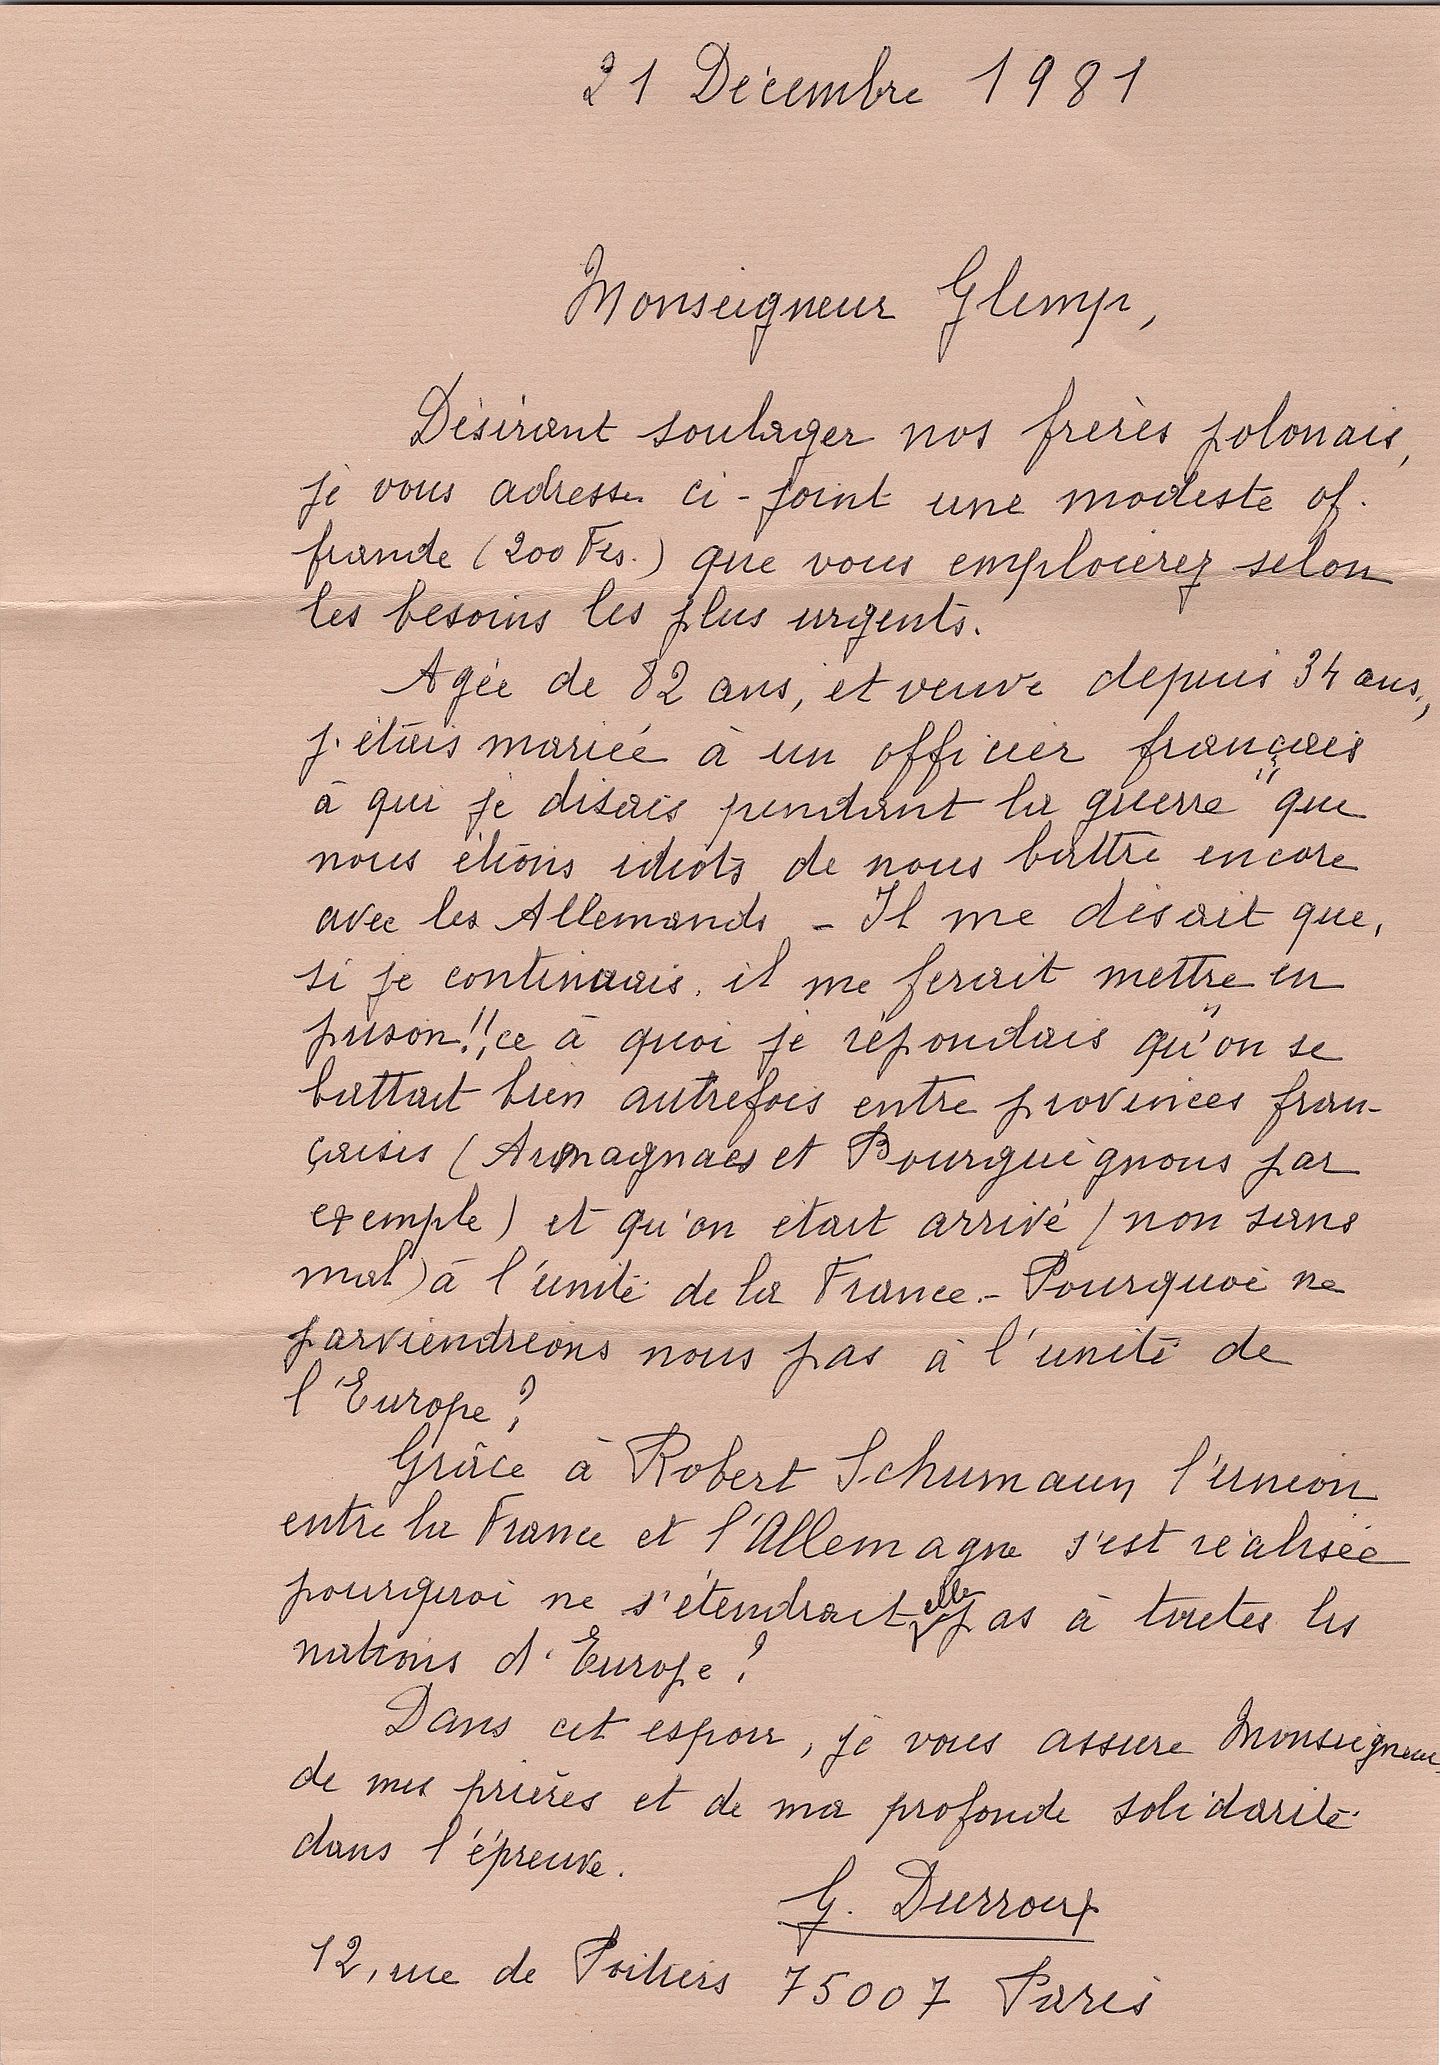 21 Décembre 1981
Monseigneur Glemp,
Désirant soulager nos frères polonais,
je vous adresse ci-joint une modeste of-
frande (200 Frs.) que vous emploierez selon
les besoins les plus urgents.
Agée de 82 ans, et veuve depuis 34 ans,
j'étais mariée à un officier français
à qui je disais pendant la guerre "que
nous étions idiots de nous battre encore
avec les Allemands - Il me disait que,
si je continuais, il me ferait mettre en
prison!! ce à quoi je répondais "qu'on se
battait bien autrefois entre provinces fran-
çaises (Armagnacs et Bourguignons par
exemple) et qu'on était arrivé (non sans
mal) à l'unité de la France. - Pourquoi ne
parviendrions nous pas à l'unité de
l'Europe?
Grâce à Robert Schumann l'union
entre la France et l'Allemagne s'est réalisée
pourquoi ne s'étendrait elle pas à toutes les
nations d'Europe?
Dans cet espoir, je vous assure Monseigneur,
de mes prières et de ma profonde solidarité
dans l'épreuve.
G. Durroux
12, rue de Poitiers 75007 Paris